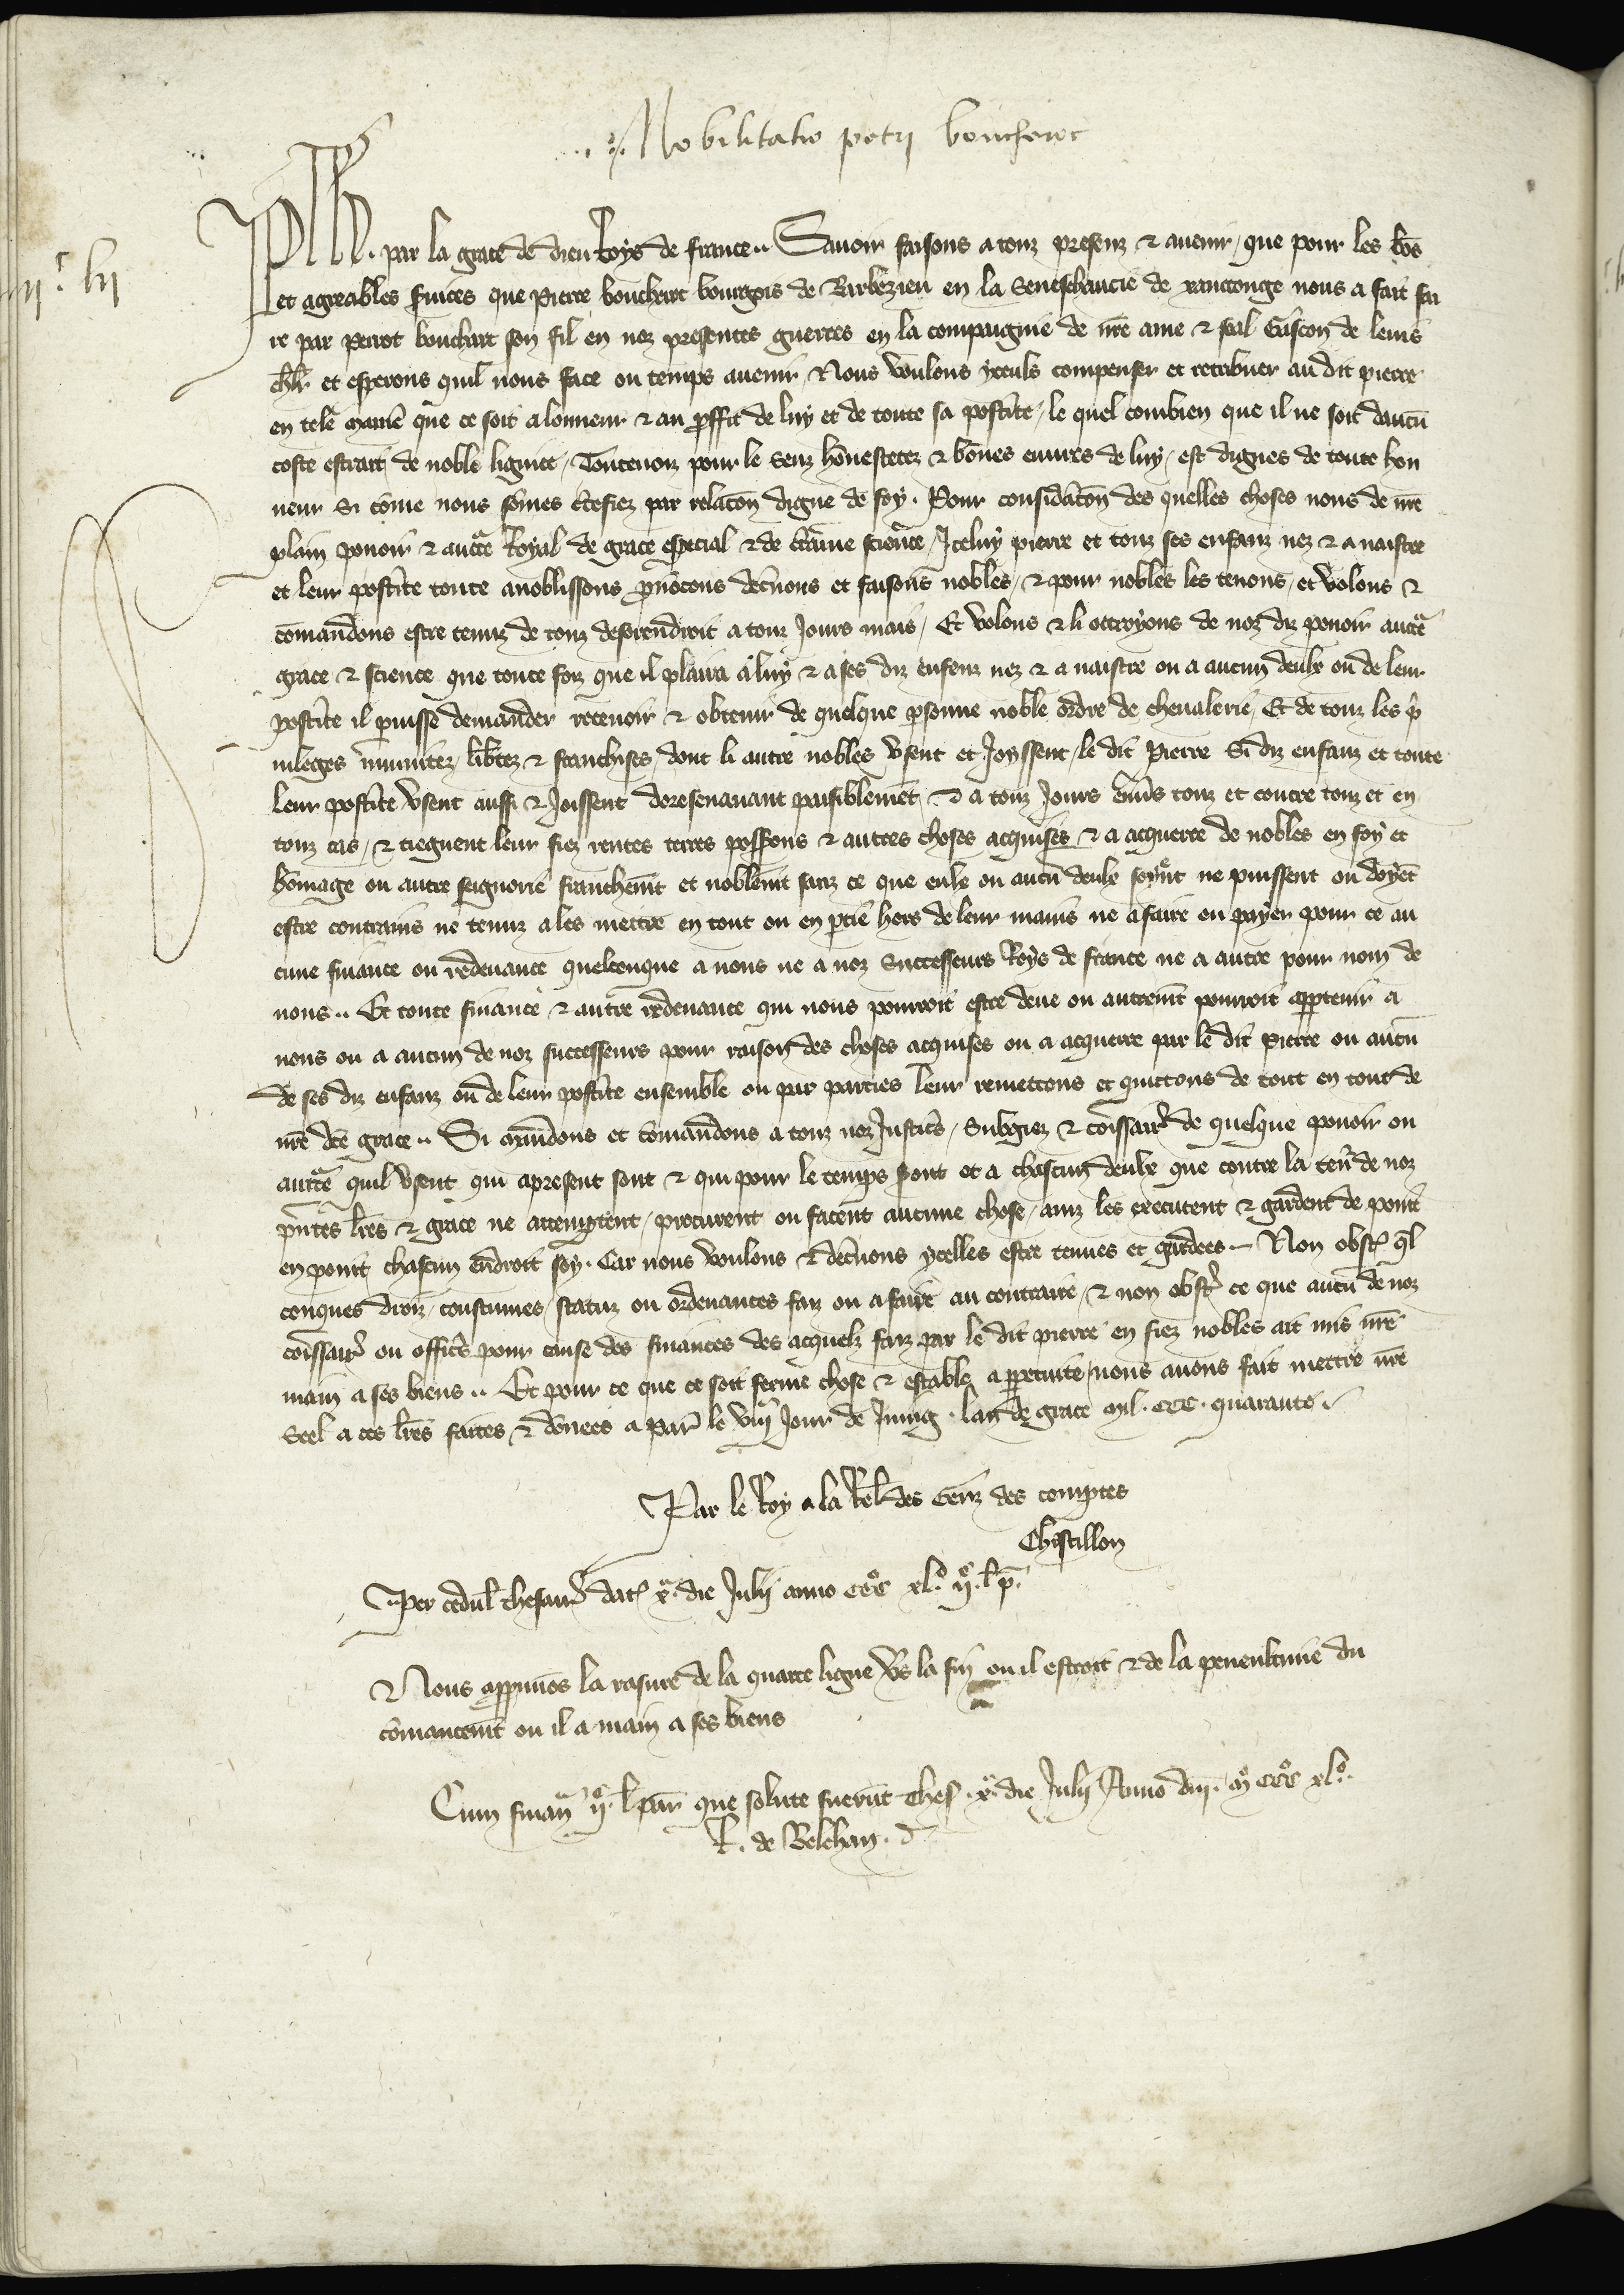 Nobilitatio petri bouchart
iiijc lij
Ph. par la grace de dieu Roys de france.. Sauoir faisons a touz presenz & auenir, que pour les bōs
et agreables s̄uices que Pierre bouchart bourgois de Barbezieu en la Seneschaucie de xanctonge nous a fait fai
re par perrot bouchart son fil en noz presentes guerres en la compaignie de nr̄e ame & feal Gascon de leuis
ch̄lr et esperons quil nous face ou temps auenir, Nous voulons yceuls compenser et retribuer au dit pierre
en tele manie͂ que ce soit a lonneur & au proffit de luy et de toute sa post̾ite, le quel combien que il ne soit daucū
coste estrait de noble lignee, Toutenoiz pour le Senz hōnestetez & bōnes euures de luy, est dignes de toute hon
neur Si cōme nous sōmes c̾tefiez par relacōn digne de foy. Pour considācōn des quelles choses nous de nr̄e
plain pouoir & auctē Royal de grace especial & de c̾taine science, Iceluy pierre et touz ses enfanz nez & a naistre
et leur post̾ite toute anoblissons pronōcons dec̾nons et faisons nobles, & pour nobles les tenons, et volons &
cōmandons estre tenuz de touz desorendroit a touz Jours mais, Et volons & li ottroyons de noz diz pouoir auctē
grace & science que toute foiz que il plaira a luy & a ses diz enfenz nez & a naistre ou a aucun deulx ou de leur
post̾ite il puisse demander receuoir & obtenir de quelque psonne noble ordre de cheualerie, Et de touz les pi
uileges īmunitez, lib̾tez & franchises, dont li autre nobles vsent et Joyssent, le dit Pierre Si diz enfanz et toute
leur post̾ite vsent aussi & Joissent doresenauant paisiblemēt & a touz Jours enūs touz et contre touz et en
touz cas, & tiegnent leur fiez rentes terres possessions & autres choses acquises & a acquerre de nobles en foy et
hōmage ou autre seignorie franchemt̄ et noblemt̄ sanz ce que eulx ou aucū deulx soyēt ne puissent ou doyēt
estre contrains ne tenuz a les mettre en tout ou en ptie hors de leur mains ne a faire ou payer pour ce au
cune finance ou redeuance quelconque a nous ne a noz Successeurs Roys de france ne a autre pour nom de
nous.. Et toute finance & autre redeuance qui nous pourroit estre deue ou autremt̄ pourroit appartenir a
nous ou a aucun de noz successeurs pour raison des choses acquises ou a acquerre par le dit Pierre ou aucū
de ses diz enfanz ou de leur post̾ite ensemble ou par parties leur remettons et quittons de tout en tout de
nr̄e dc̄e grace.. Si mandons et cōmandons a touz noz Justic̾s, Subgiez & cōissaires de quelque pouoir ou
auctē quil vsent qui apresent sont & qui pour le temps s̾ont et a chascun deulx que contre la ten̄r de noz
pn̄tes lr̄es & grace ne attemptent, procurent ou facent aucune chose, ainz les executent & gardent de point
en point chascun endroit soy. Car nous voulons & dec̾nons ycelles estre tenues et gardees. Non obst̄ ql
conques droiz, coustumes, statuz ou ordenances faiz ou a faire au contraire, & non obst̄ ce que aucū de noz
cōissaires ou offic̾s pour cause des finances des acquelz faiz par le dit pierre en fiez nobles ait mis nr̄e
main a ses biens.. Et pour ce que ce soit ferme chose & estable a ppetuite nous auons fait mettre nr̄e
Seel a ces lr̄es faites & dōnees a Par̄ le viije Jour de Juing. lan de grace mil. ccc. quarante.
Par le Roy a la Rel̄ des Genz des comptes
Chastillon
Per cedul̄ thesaur̄ dat̄ xa die Julij anno cccº xlº ijº l p̄.
Nous approuuōs la rasure de la quarte ligne v̾s la fin ou il estroit & de la penenltime du
cōmancemt̄ ou il a main a ses biens
Cum finan̄ ijº l par̄ que solute fuerūt thes̄. xa. die Julij Anno dnī. mº cccº xlº.
R. de Belehan.